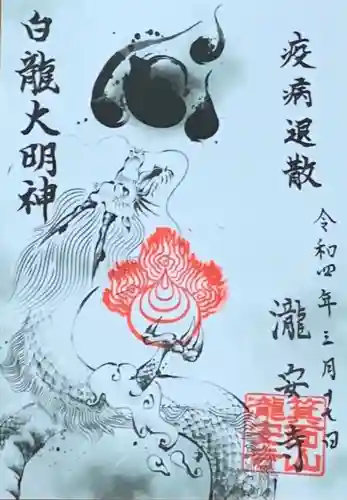 疫病退散
令和四年三月十七日
瀧安寺
白龍大明神
箕面山
瀧安寺